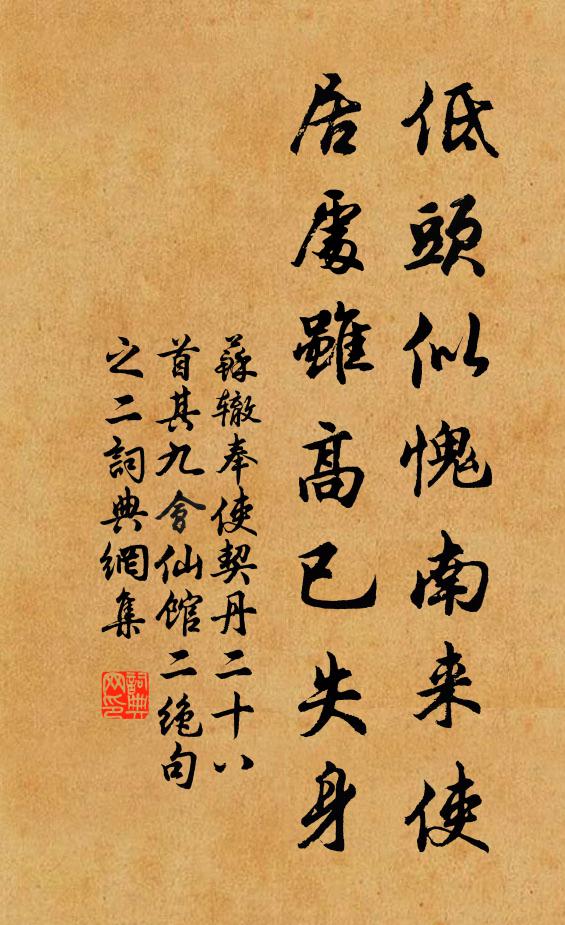 低頭似愧南来使
居處雖高已失身
蘇辙奉使契丹二十八
首其九會仙館二绝句
之二詞典網集
詞典网印